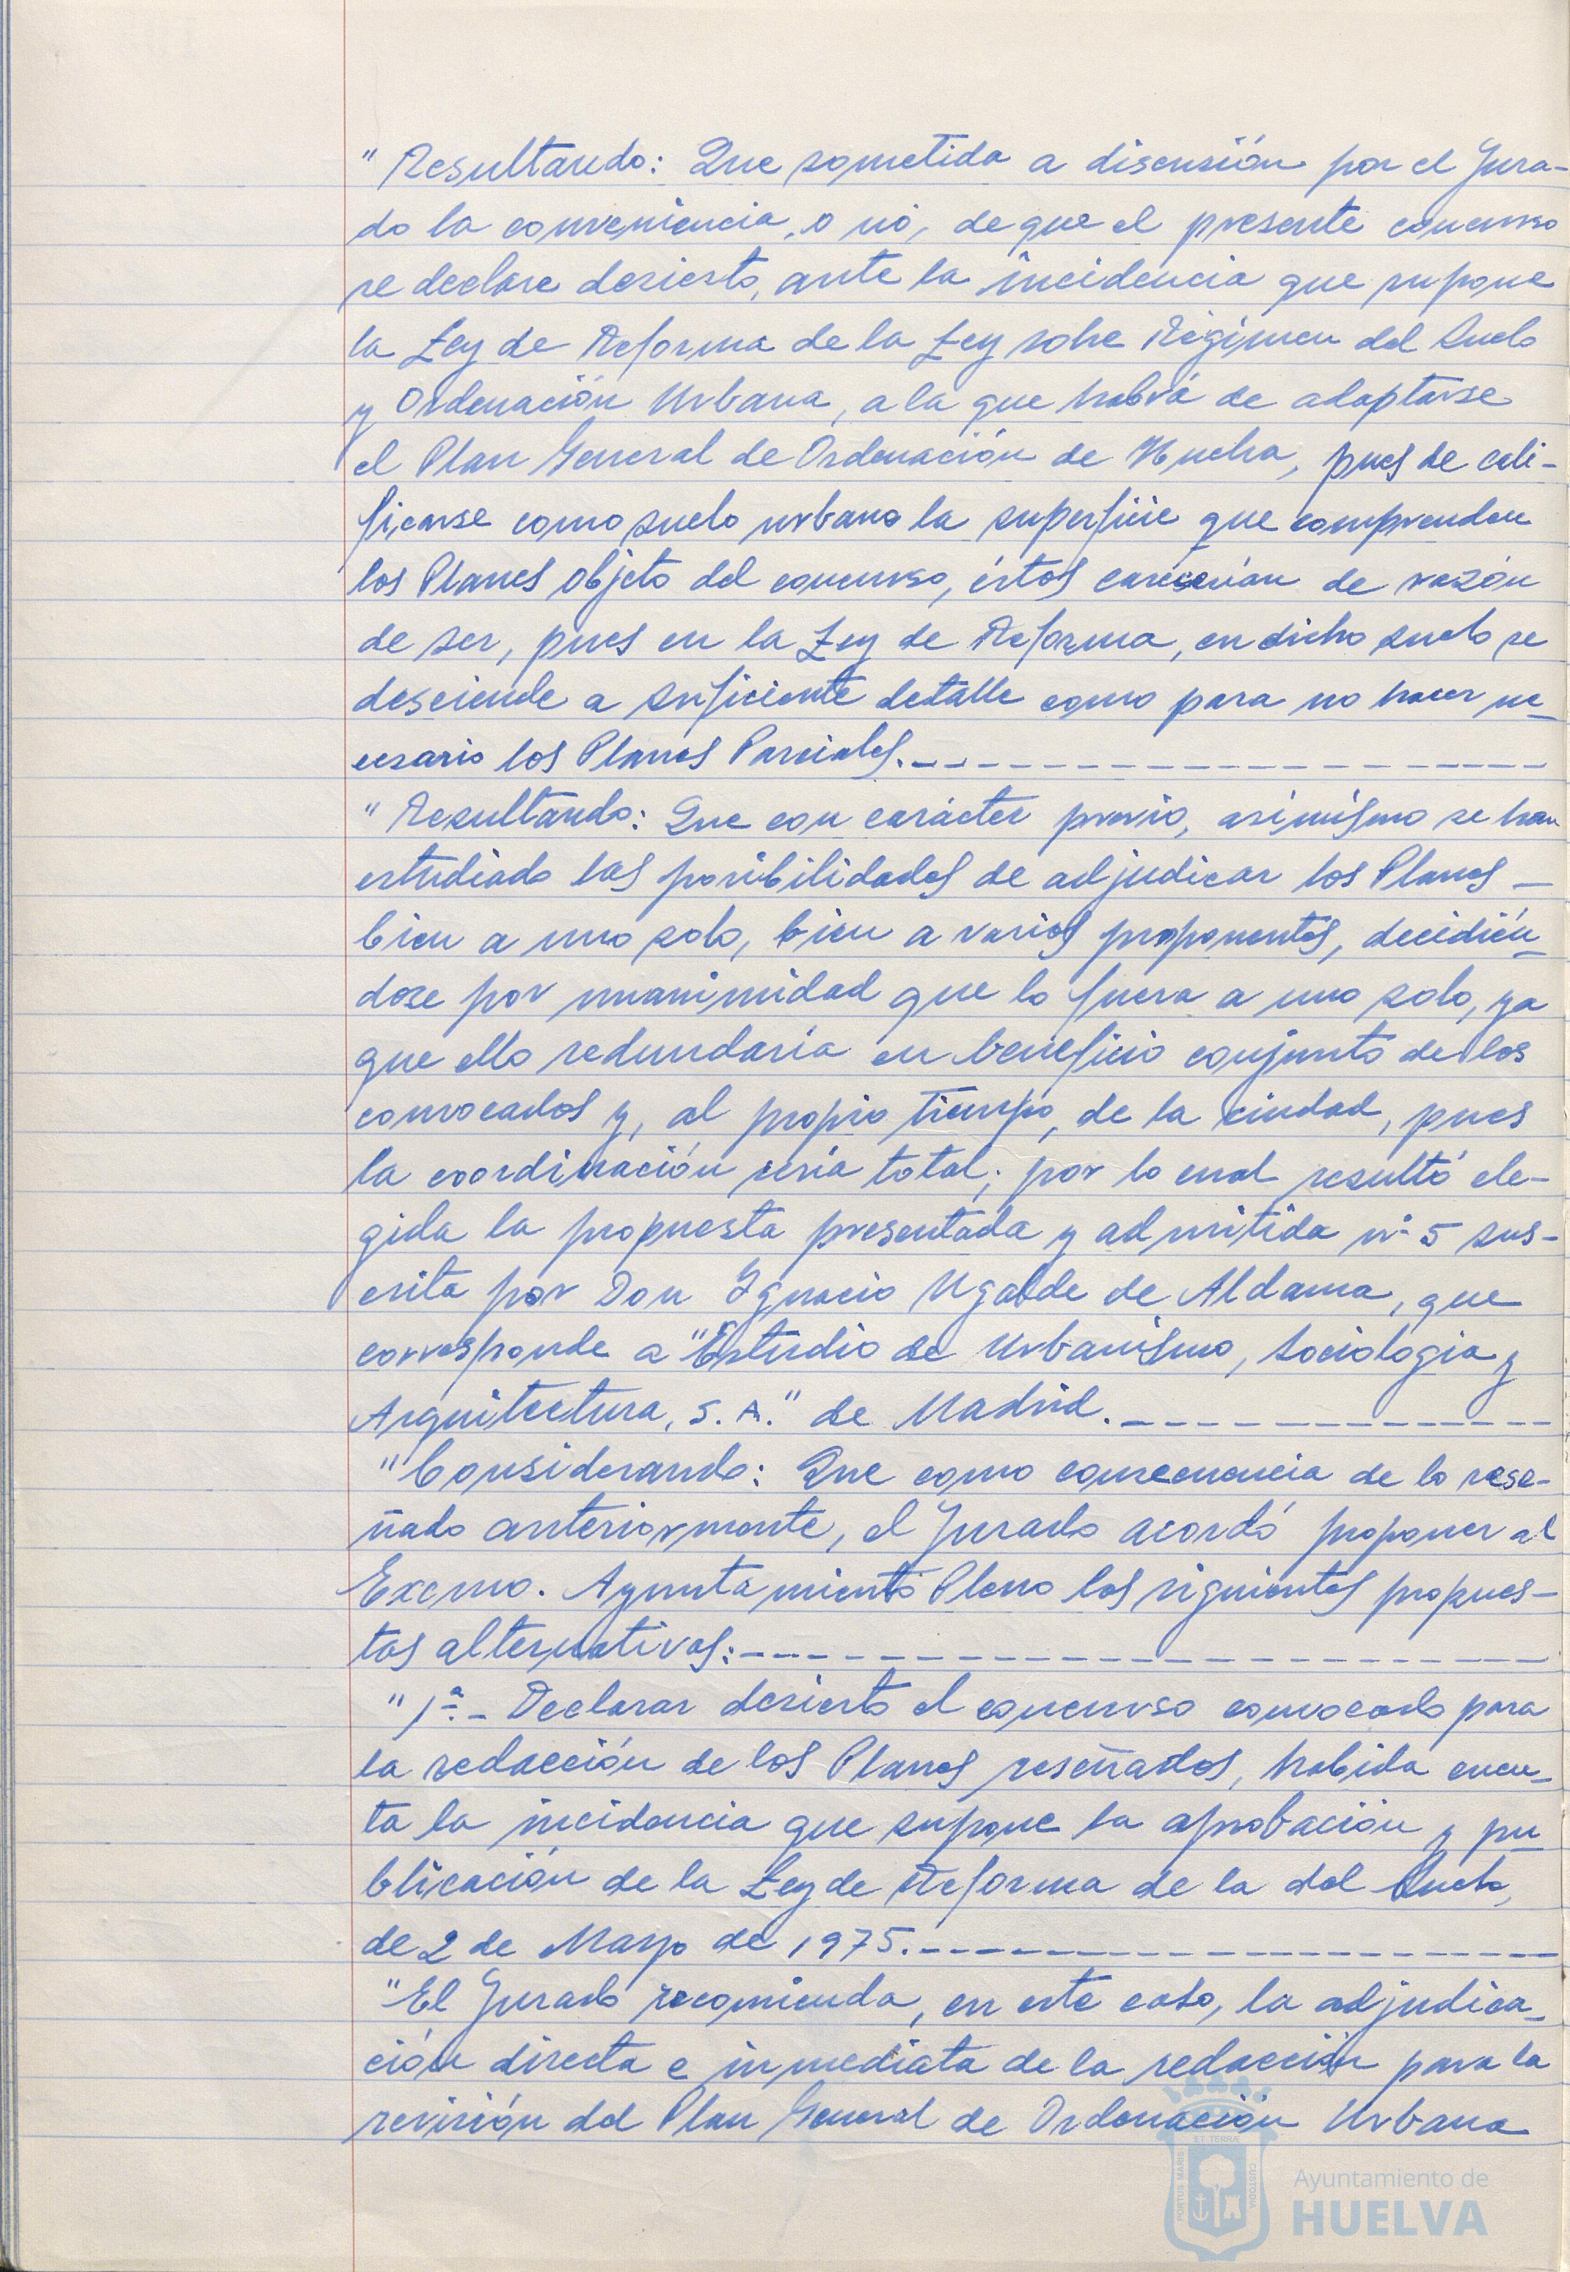 "Resultando: Que sometida a discusión por el Jura-
do la conveniencia, o no, de que el presente concurso
se declare desierto, ante la incidencia que supone
la Ley de Reforma de la Ley sobre Régimen del Suelo
y Ordenación Urbana, a la que habrá de adaptarse
el Plan General de Ordenación de Huelva, pues de cali-
ficarse como suelo urbano la superficie que comprenden
los Planes objeto del concurso, éstos carecerían de razón
de ser, pues en la Ley de Reforma, en dicho suelo se
desciende a suficiente detalle como para no hacer ne-
cesario los Planes Parciales.
"Resultando: Que con carácter previo, asimismo se han
estudiado las posibilidades de adjudicar los Planes -
bien a uno solo, bien a varios proponentes, decidién-
dose por unanimidad que lo fuera a uno solo, ya
que ello redundaría en beneficio conjunto de los
convocados y, al propio tiempo, de la ciudad, pues
la coordinación sería total; por lo cual resultó ele-
gida la propuesta presentada y admitida nº 5 sus-
crita por Don Ignacio Ugalde de Aldama, que
corresponde a "Estudio de Urbanismo, Sociología y
Arquitectura, S. A." de Madrid.
"Considerando: Que como consecuencia de lo rese-
ñado anteriormente, el Jurado acordó proponer al
Excmo. Ayuntamiento Pleno las siguientes propues-
tas alternativas:
"1ª.- Declarar desierto el concurso convocado para
la redacción de los Planes reseñados, habida cuen-
ta la incidencia que supone la aprobación y pu
blicación de la Ley de Reforma de la del Suelo,
de 2 de Mayo de 1975.
"El Jurado recomienda, en este caso, la adjudica-
ción directa e inmediata de la redacción para la
revisión del Plan General de Ordenación Urbana
PORTUS MARIS ET TERRAE CUSTODIA
Ayuntamiento de
HUELVA